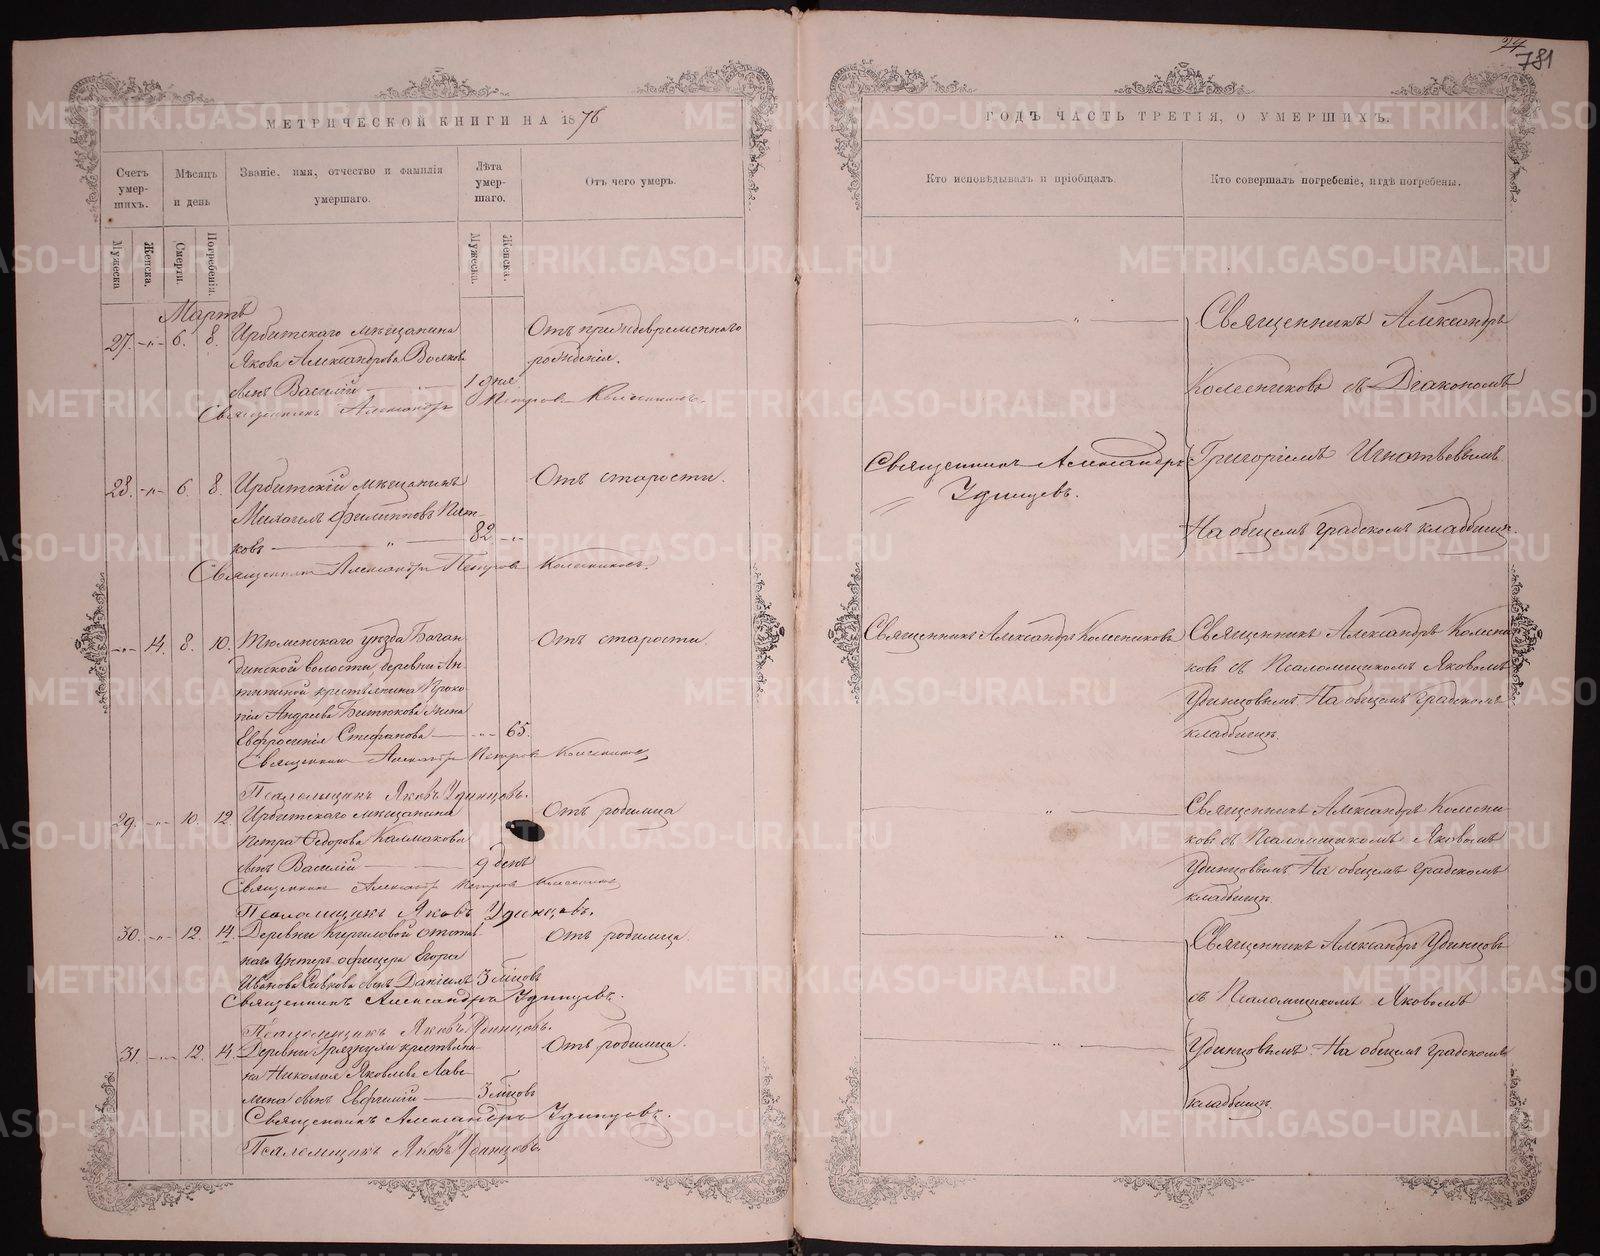 74
781
МЕТРИЧЕСКОЙ КНИГИ НА 1876
ГОДЪ ЧАСТЬ ТРЕТІЯ, О УМЕРШИХЪ.
Счетъ умер-шихъ.
Мѣсяцъ и день
Званіе, имя, отчество и фамилія умершаго.
Лѣта умер-шаго.
Отъ чего умеръ.
Кто исповѣдывалъ и пріобщалъ.
Кто совершалъ погребеніе, и гдѣ погребены.
Мужеска
Женска.
Смерти.
Погребенія.
Мужеска.
Женска.
Мартъ
27. -„- 6. 8. Ирбитскаго мѣщанина
Якова Александрова Волкова
сынъ Василій 1 дня
Отъ преждевременнаго
рожденія.
Священникъ Александръ Петровъ Колесниковъ.
Священникъ Александръ
Колесниковъ съ Діакономъ
Григоріемъ Игнатьевымъ
На общемъ градскомъ кладбищѣ.
28. -„- 6. 8. Ирбитскій мѣщанинъ
Михаилъ Филипповъ Пят-
ковъ 82 -„-
Отъ старости.
Священникъ Александръ Петровъ Колесниковъ.
Священникъ Александръ
Удинцевъ.
-„- 14. 8. 10. Тюменскаго уѣзда Боган-
динской волости деревни Ан-
типиной крестьянина Проко-
пія Андреева Битюкова жена
Евфросинія Стефанова -„- 65.
Отъ старости.
Священникъ Александръ Петровъ Колесниковъ
Псаломщикъ Яковъ Удинцовъ.
Священникъ Александръ Колесниковъ
Священникъ Александръ Колесни-
ковъ съ Псаломщикомъ Яковомъ
Удинцовымъ. На общемъ градскомъ
кладбищѣ.
29. -„- 10. 12. Ирбитскаго мѣщанина
Петра Ѳедорова Калмакова
сынъ Василій 9 день
Отъ родимца
Священникъ Александръ Петровъ Колесниковъ
Псаломщикъ Яковъ Удинцовъ.
Священникъ Александръ Колесни-
ковъ съ Псаломщикомъ Яковомъ
Удинцовымъ. На общемъ градскомъ
кладбищѣ.
30. -„- 12. 14. Деревни Кириловой отстав-
наго Унтеръ офицера Егора
Иванова Сивкова сынъ Даніилъ 3 мѣсцовъ
Отъ родимца.
Священникъ Александръ Удинцевъ.
Псаломщикъ Яковъ Удинцовъ.
Священникъ Александръ Удинцовъ
съ Псаломщикомъ Яковомъ
Удинцовымъ. На общемъ градскомъ
кладбищѣ.
31. -„- 12. 14. Деревни Грязнухи крестьяни-
на Николая Яковлева Лав-
лина сынъ Евфгиній 3 мѣсцовъ
Отъ родимца.
Священникъ Александръ Удинцовъ.
Псаломщикъ Яковъ Удинцовъ.
METRIKI.GASO-URAL.RU